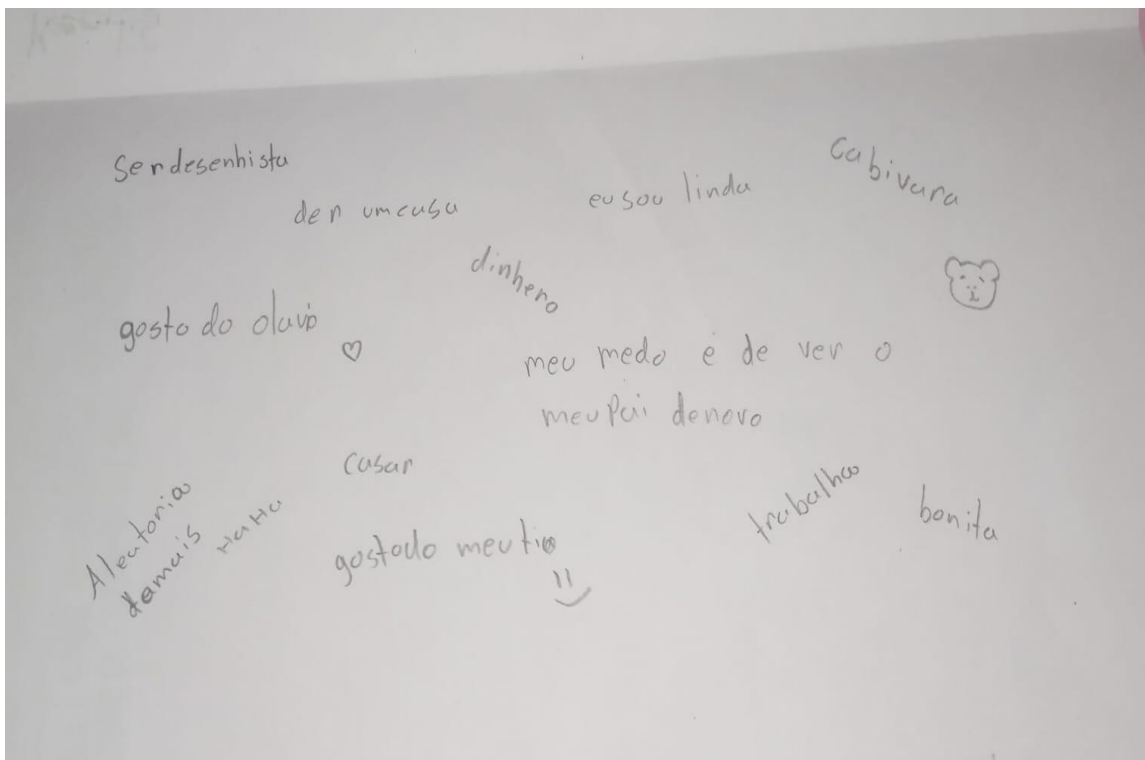 Serdesenhista
cabivara
der umcasa
eu sou linda
dinhero
gosto do olavo
meu medo e de ver o
meu Pai denovo
casar
Aleatoria
demais
HaHa
gostado meu tio
trabalha
bonita